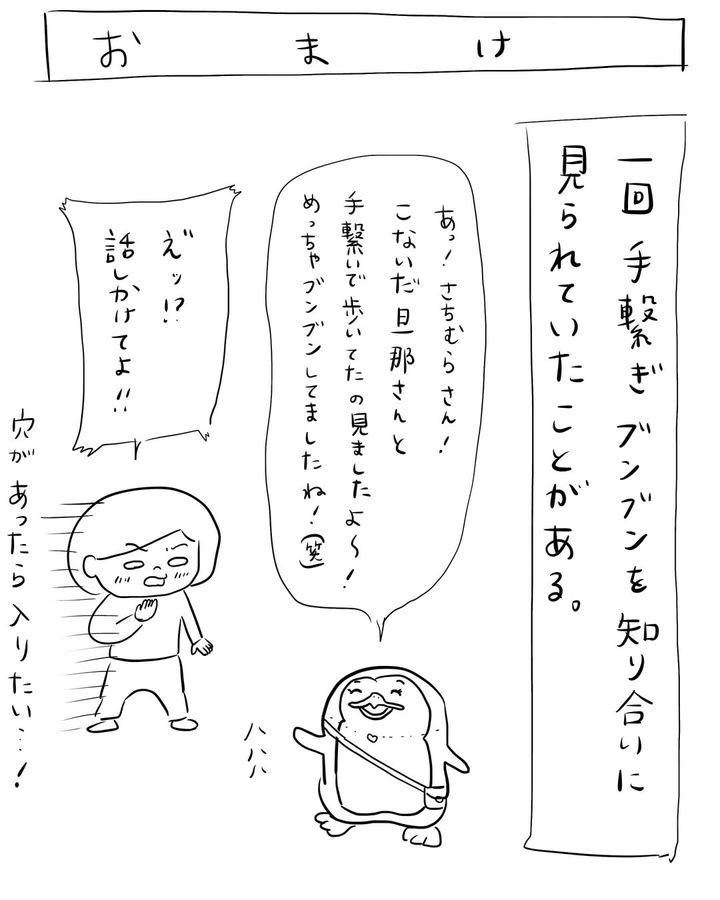 おまけ
一回 手繋ぎ ブンブンを 知り合いに
見られていたことがある。
あっ！さちむらさん！
こないだ旦那さんと
手繋いで歩いてたの見ましたよ〜！
めっちゃブンブンしてましたね！（笑）
ハハハ
え゛ッ!?
話しかけてよ!!
穴があったら入りたい…！